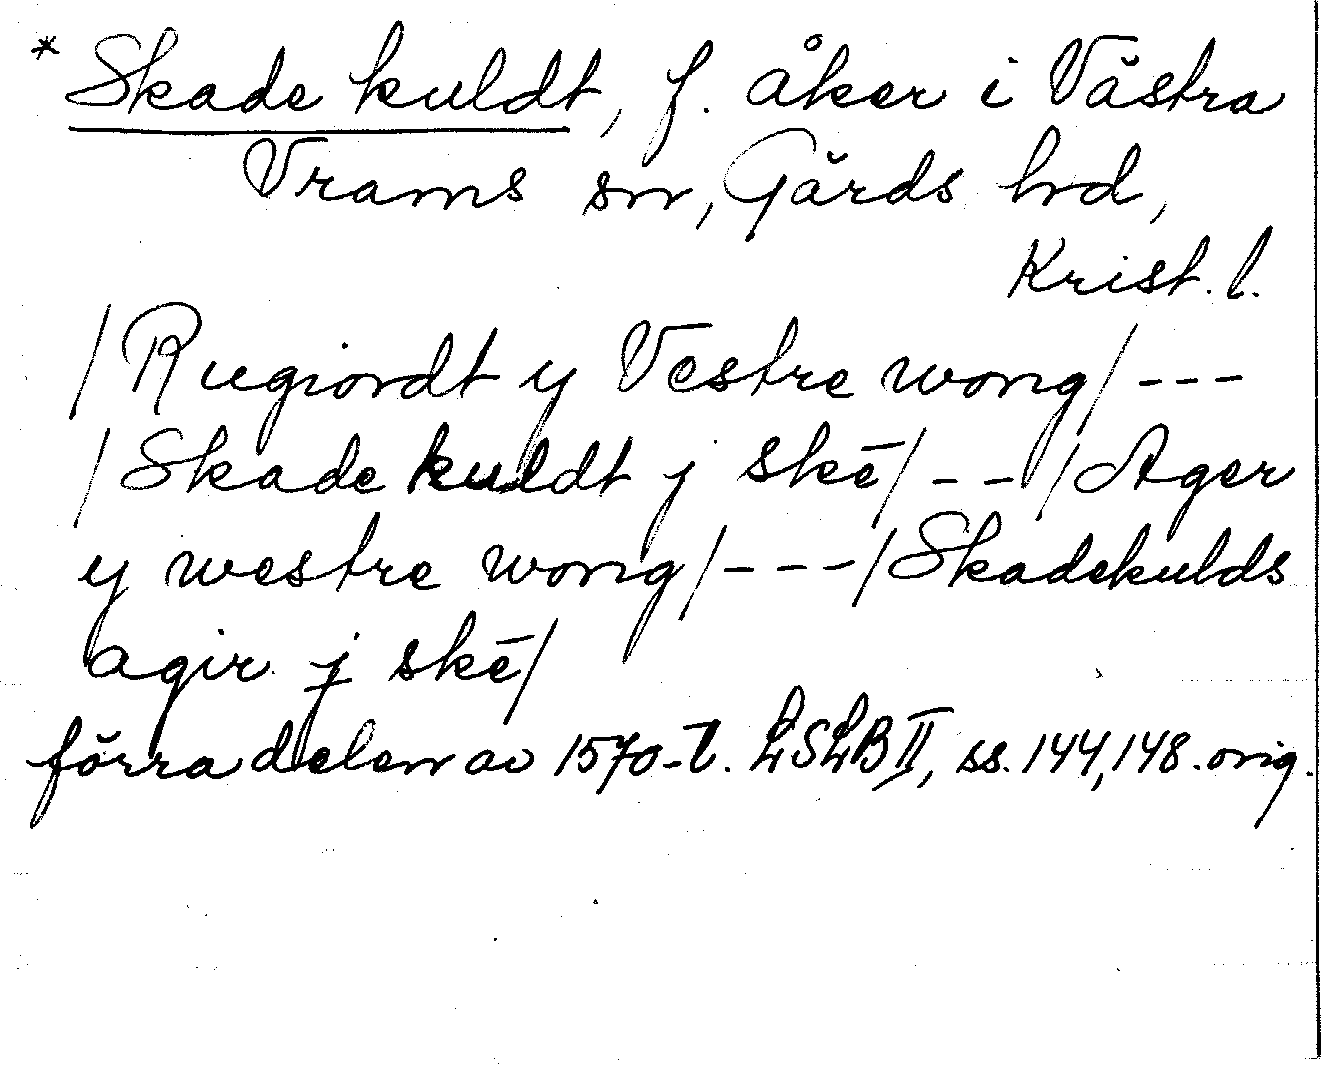 * Skade kuldt, f. åker i Västra
Vrams sn, Gärds hd,
Krist. l.
/Rugiordt y Vestre wong/ ---
/Skade kuldt j skē/ -- /Ager
y westre wong/ --- /Skadekulds
agir j skē/
förra delen av 1570-t. LSLB II, ss. 144, 148. orig.